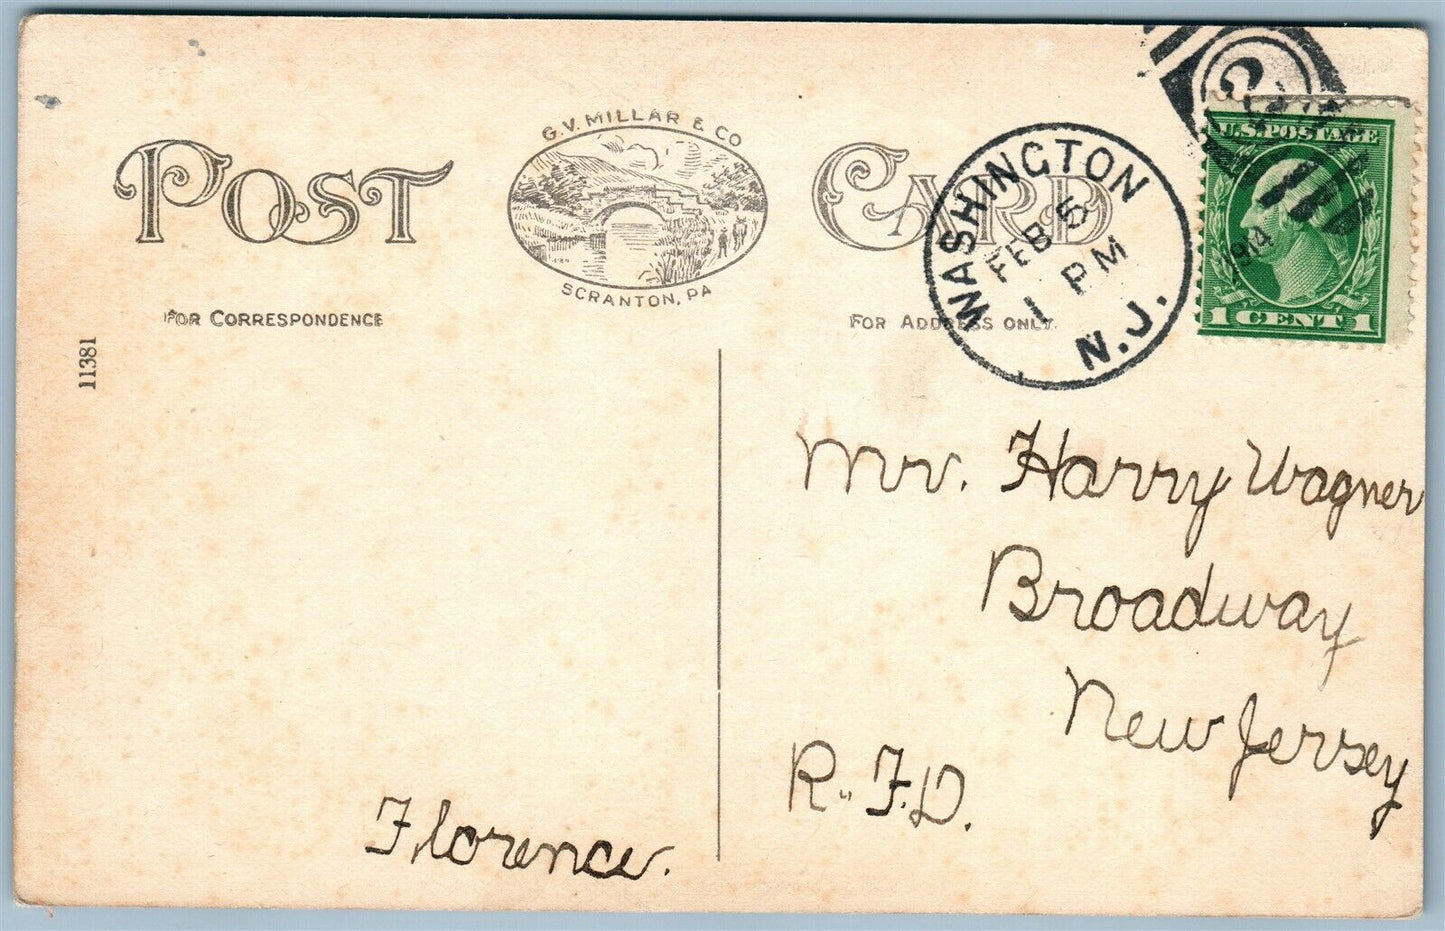 POST CARD
G.V. MILLAR & CO
SCRANTON, PA
FOR CORRESPONDENCE
FOR ADDRESS ONLY.
11381
WASHINGTON
FEB 5
1 PM
1914
N.J.
U.S. POSTAGE
1 CENT 1
Mr. Harry Wagner
Broadway
New Jersey
R. F. D.
Florence.